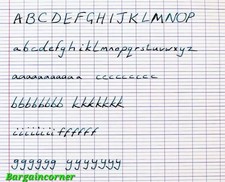 ABCDEFGHIJKLMNOP
abcdefghijklmnopqrstuvwxyz
aaaaaaaaaaa ccccccccc
bbbbbbbb kkkkkkk
iiiiiiiffffff
gggggg yyyyyyy
Bargaincorner